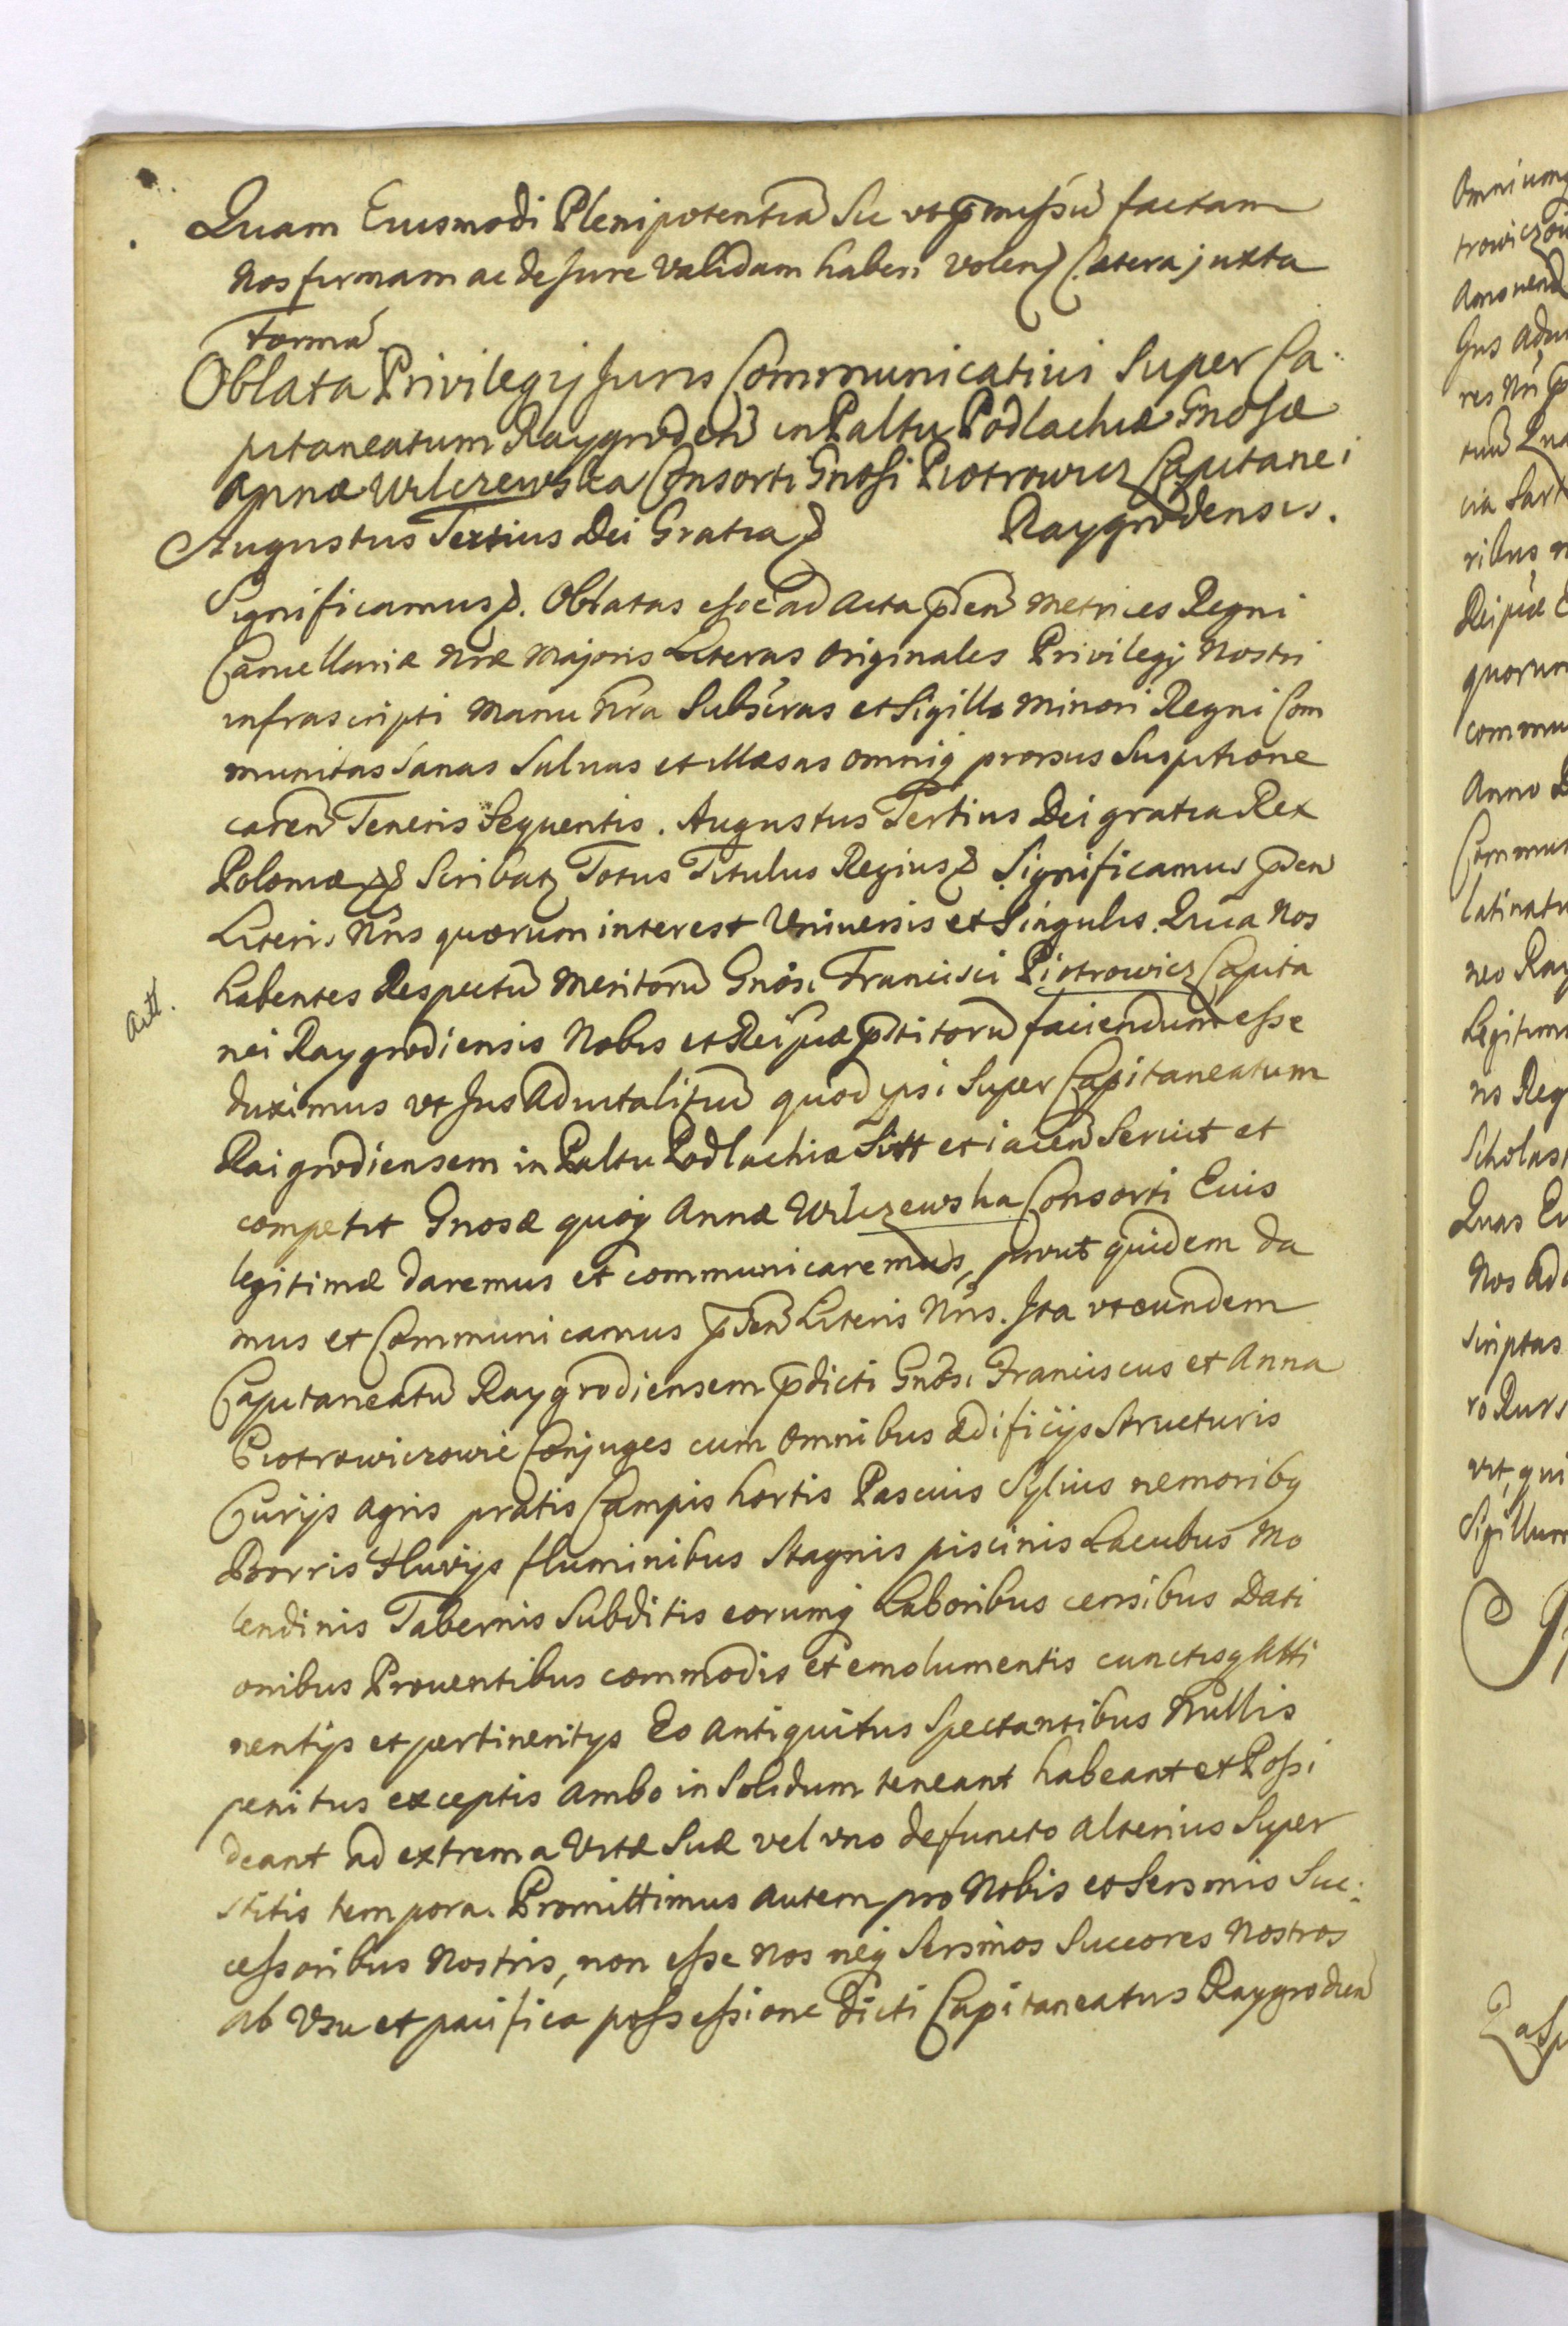 Quam Eiusmodi Plenipotentiã Sic ut p̃missũ factam
nos firmam ac de Jure Validam haberi volen̄ Cætera juxta
formã.
Oblata Privilegij Juris Communicativi Super Ca-
pitaneatum Raygroden̄ in Paltu Podlachiæ Gnosæ
Annæ Wilczewska Consorti Gnosi Piotrowicz Capitanei
Augustus Tertius Dei Gratia
Raygrodensis.
Significamus. Oblatas esse ad Acta p̃ñ Metrices Regni
Cancellariæ Nr̃æ Majoris Literas Originales Privilegij Nostri
infrascripti Manu Nr̃a Subscr̃as et Sigillo Minori Regni Com
munitas Sanas Salvas et illæsas omniq; prorsus Suspitione
caren̄ Tenoris Sequentis. Augustus Tertius Dei gratia Rex
Poloniæ Scribat Totus Titulus Regius Significamus p̃ñ
Literis Nr̃is quorum interest Universis et Singulis. Quia Nos
habentes Respectũ Meritorũ Gnosi Francisci Piotrowicz Capita
Att.
nei Raygrodiensis Nobis et Reipuæ p̃stitorũ faciendum esse
duximus ut Jus Advitalitiũ quod ipsi Super Capitaneatum
Raigrodiensem in Paltu Podlachiæ Sitt et iacen̄ Servit et
competit Gnosæ quoq; Annæ Wilczewska Consorti Eius
legitimæ daremus et communicaremus, prout quidem da
mus et Communicamus p̃ñ Literis Nr̃is. Ita ut eundem
Capitaneatũ Raygrodiensem p̃dicti Gnosi Franciscus et Anna
Piotrowiczowie Conjuges cum omnibus ædificijs Structuris
Curijs agris pratis Campis hortis Pascuis Sylvis nemoribq
Borris Fluvijs fluminibus Stagnis piscinis Lacubus Mo
lendinis Tabernis Subditis eorumq; Laboribus censibus Dati
onibus Proventibus commodis et emolumentis cunctisq; Atti
nentijs et pertinentijs Eo antiquitus Spectantibus Nullis
penitus exceptis ambo in Solidum teneant habeant et Possi
deant ad extrema Vitæ Suæ vel uno defuncto alterius Super
stitis tempora. Promittimus autem pro Nobis et Sersmis Suc-
cessoribus Nostris, non esse Nos neq; Sersmos Succores Nostros
ab Usu et pacifica possessione dicti Capitaneatus Raygrodien̄